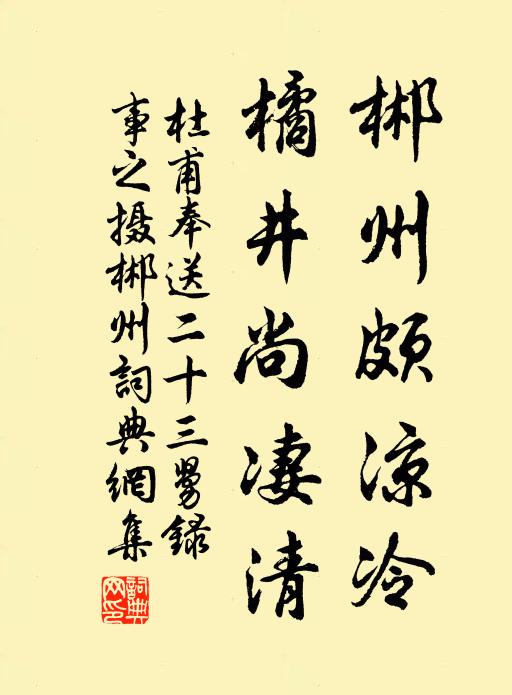 郴州颇凉冷
橘井尚凄清
杜甫奉送二十三舅録
事之摄郴州詞典網集
詞典網印